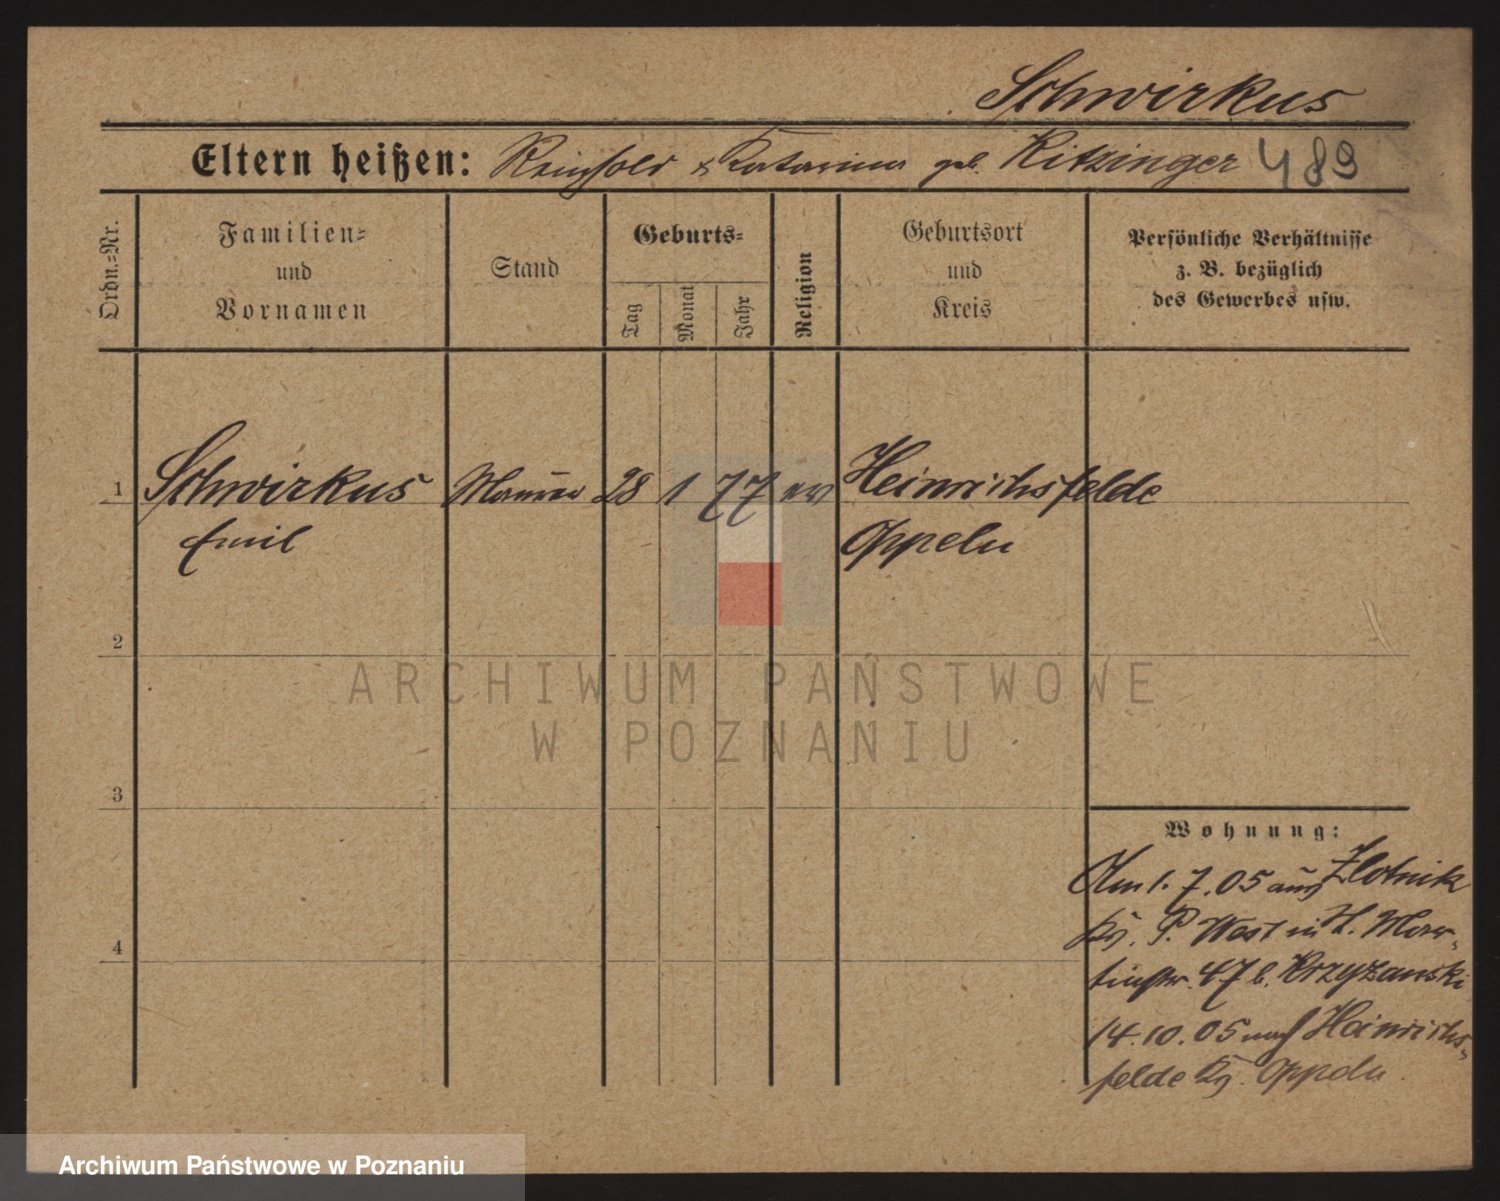 Schwirkus
Eltern heißen: Reinhold & Katarina geb. Kitzinger 489
Ordn.-Nr.
Familien-
und
Vornamen
Stand
Geburts-
Tag
Monat
Jahr
Religion
Geburtsort
und
Kreis
Persönliche Verhältnisse
z. B. bezüglich
des Gewerbes usw.
1 Schwirkus Maurer 28 1 77 ev Heinrichsfelde
Emil Oppeln
2
3
4
ARCHIWUM PAŃSTWOWE
W POZNANIU
Wohnung:
Am 1. 7. 05 aus Zlotnik
Kr. P. West in H. Mar-
tinstr. 47 b. Krzyzanski
14. 10. 05 nach Heinrichs-
felde Kr. Oppeln
Archiwum Państwowe w Poznaniu